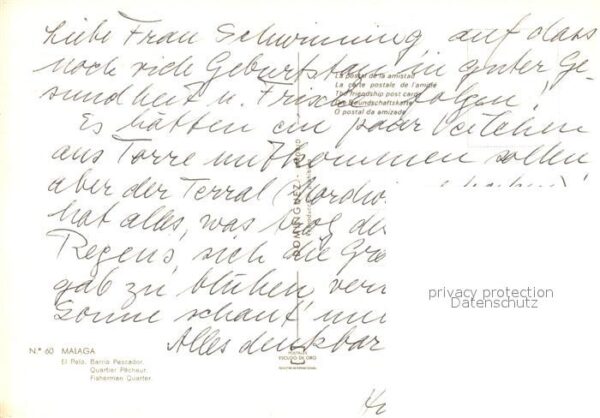 Liebe Frau Schwinning, auf dass
noch viele Geburtstage in guter Ge-
sundheit u. Frische folgen!
Es hätten ein paar Veilchen
aus Torre mitkommen sollen,
aber der Terral (Nordwi
hat alles, was trotz des
Regens, sich die
gab zu blühen, ver
Sonne schaut
Alles denkbar
La postal de la amistad
La carte postale de l'amitié
The friendship post card
Die Freundschaftskarte
O postal da amizade
DOMINGUEZ
POSTALES
ESCUDO DE ORO
N.º 60 MALAGA
El Palo. Barrio Pescador.
Quartier Pêcheur.
Fisherman Quarter.
privacy protection
Datenschutz